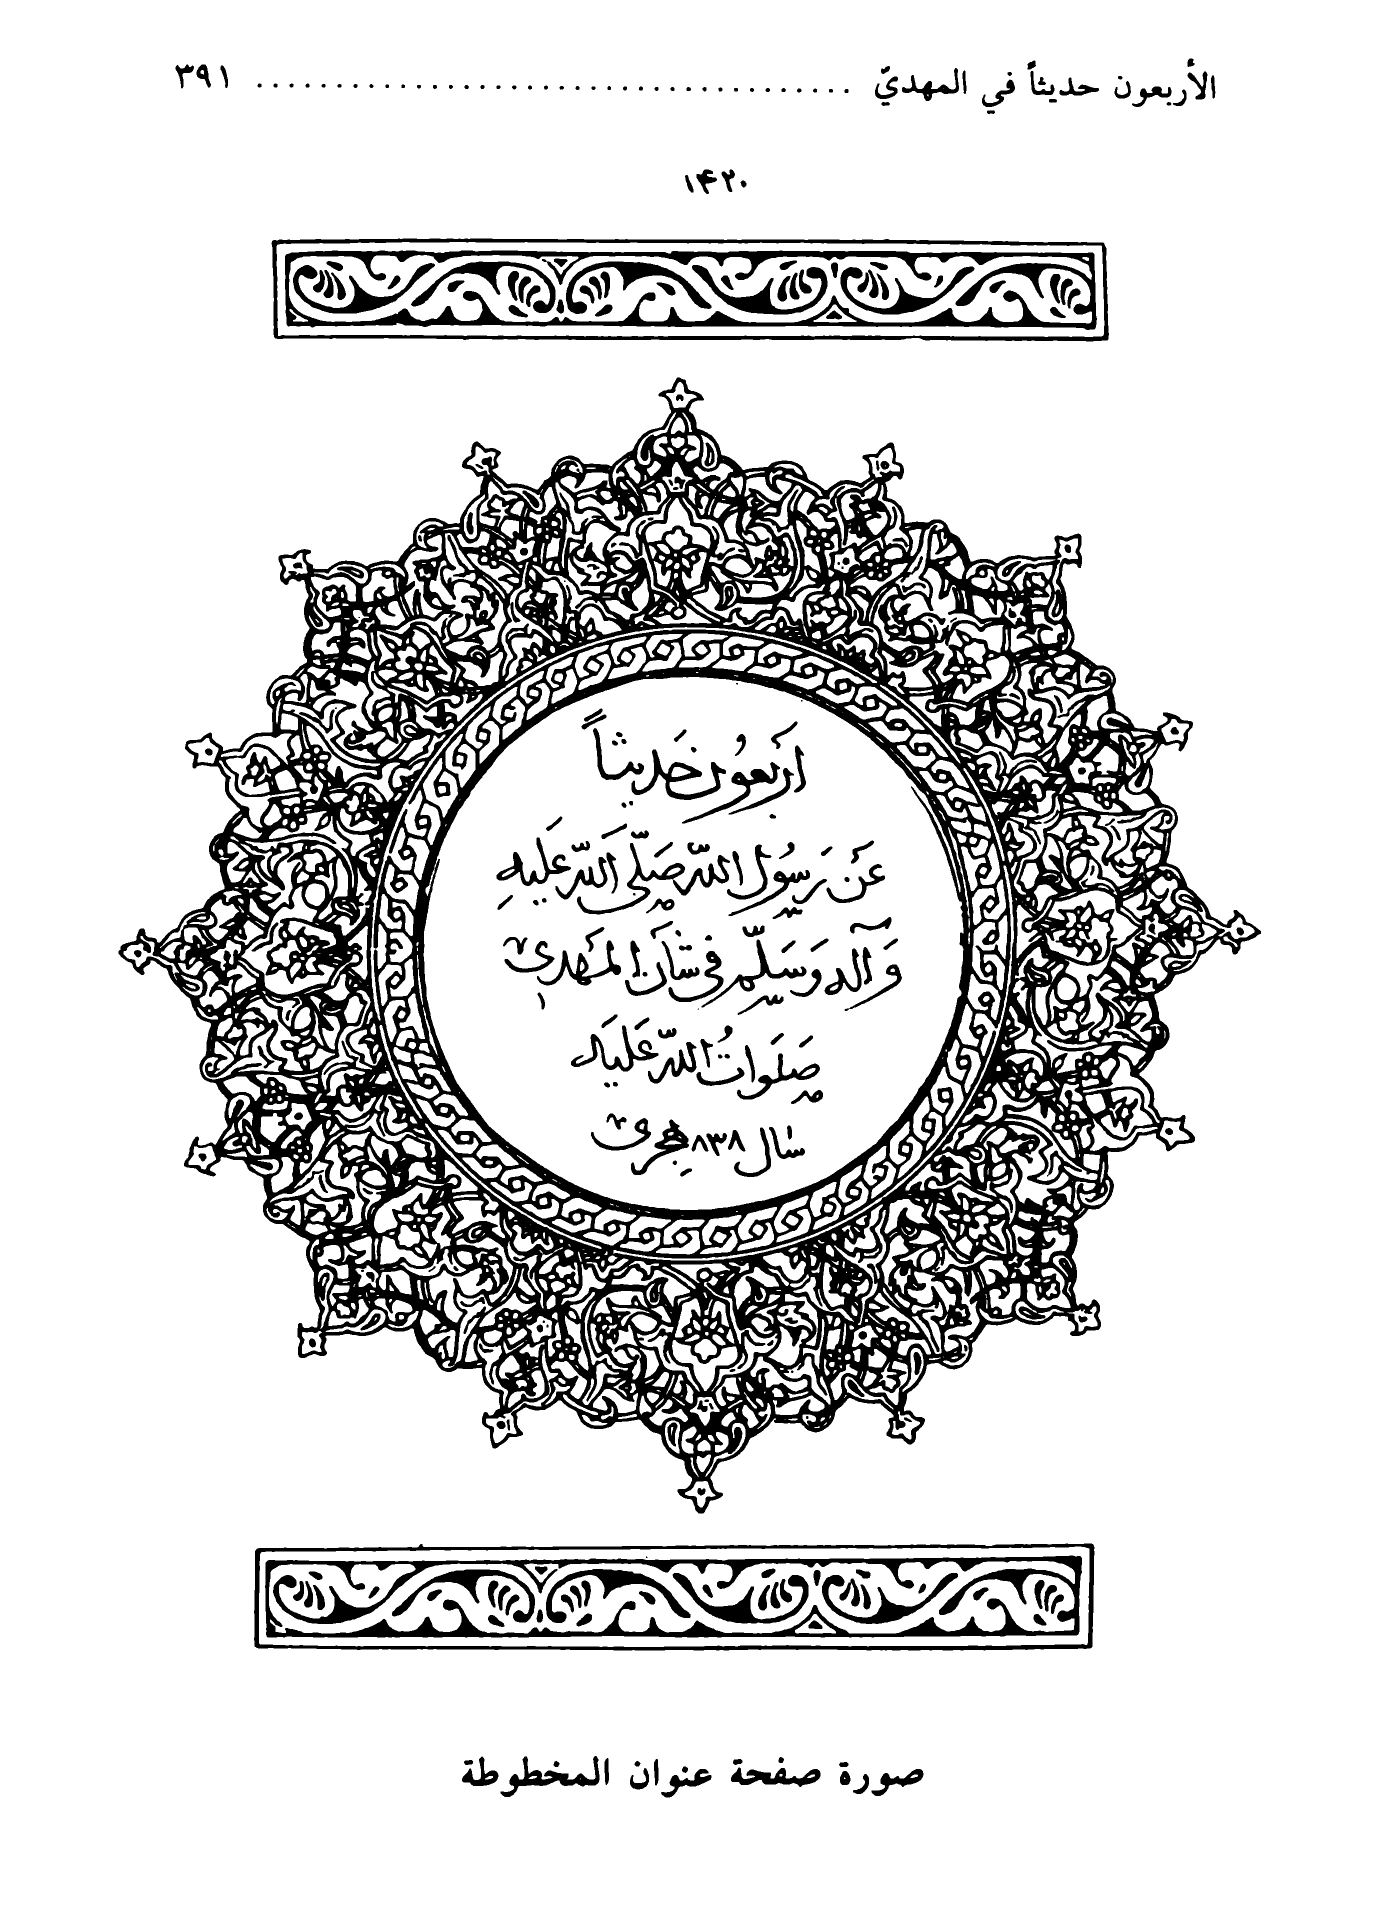 الأربعون حديثاً في المهديّ ........................................ ٣٩١
۱۴۲۰
اَربَعوُن حَديثاً
عَن رَسوُل اللّه صَلّى اَللّه عَلَيهِ
وَ آله وَ سَلّم في شَأن المَهدي
صَلَواتُ اللّه عَلَيه
سال ۸۳۸ هجری
صورة صفحة عنوان المخطوطة